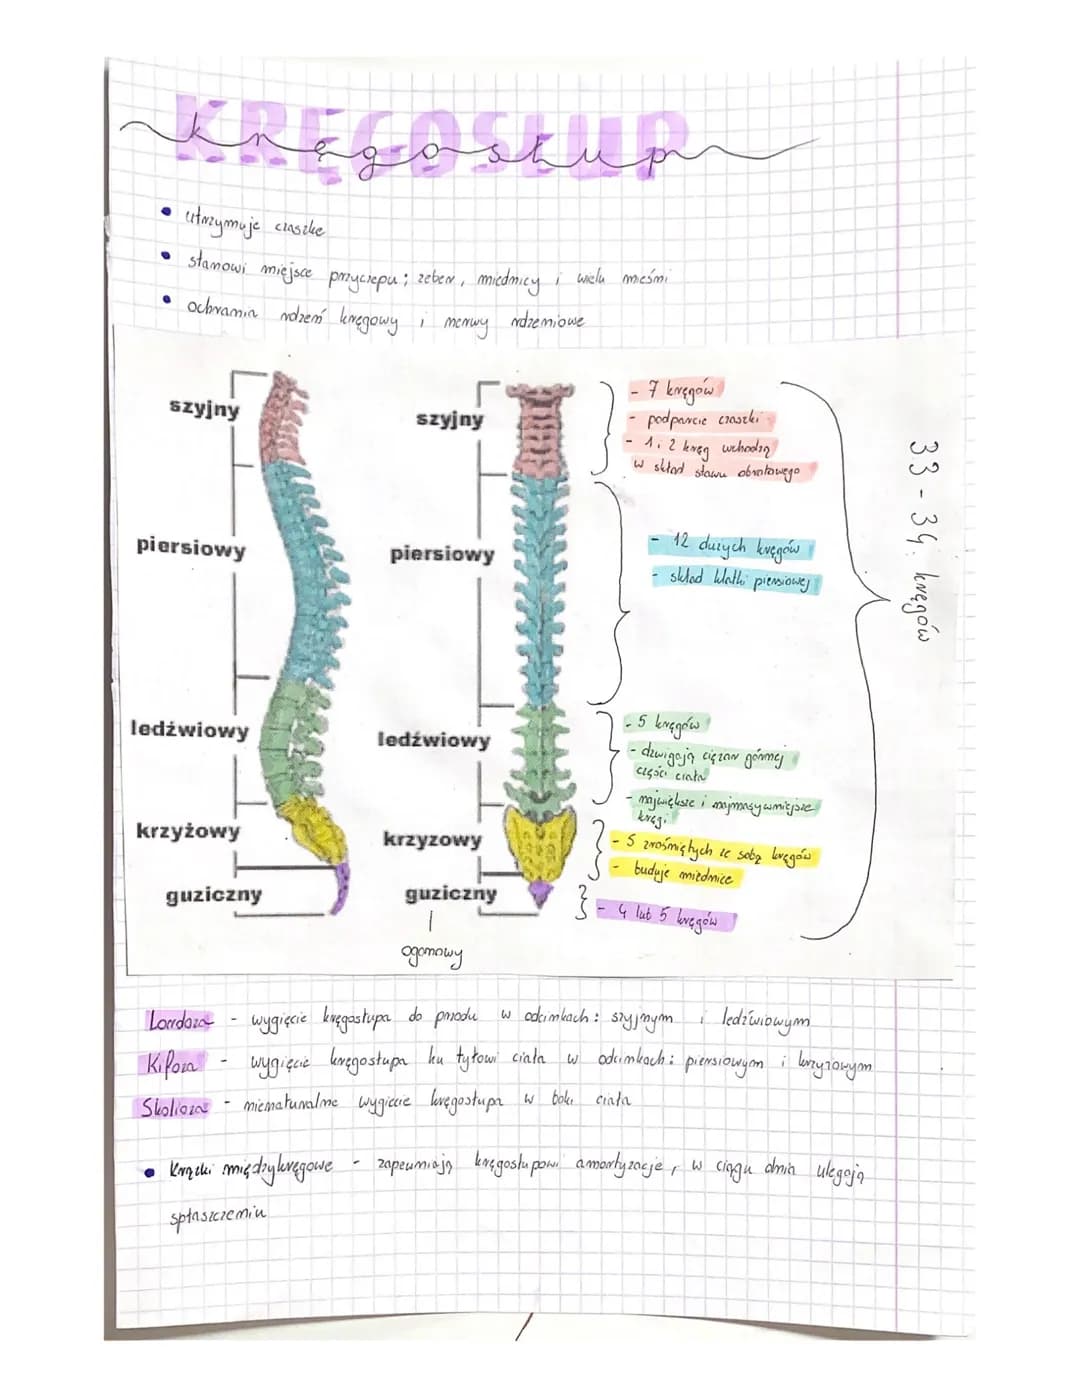 KRĘGOSŁUP
kręgosłup
• utrzymuje czaszkę
• stanowi miejsce przyczepu; żeber, miednicy i wielu mięśni
• ochrania rdzeń kręgowy i nerwy rdzeniowe
szyjny
piersiowy
ledźwiowy
krzyżowy
guziczny
szyjny
piersiowy
ledźwiowy
krzyzowy
guziczny
ogonowy
- 7 kręgów
- podparcie czaszki
- 1 i 2 kręg wchodzą
w skład stawu obrotowego
- 12 dużych kręgów
- skład klatki piersiowej
- 5 kręgów
- dźwigają ciężar górnej
części ciała
- największe i najmasywniejsze
kręgi
- 5 zrośniętych ze sobą kręgów
- buduje miednice
- 4 lub 5 kręgów
33-34 kręgów
Lordoza - wygięcie kręgosłupa do przodu w odcinkach: szyjnym i ledźwiowym
Kifoza - wygięcie kręgosłupa ku tyłowi ciała w odcinkach: piersiowym i krzyżowym
Skolioza - nienaturalne wygięcie kręgosłupa w boki ciała
• Krążki międzykręgowe - zapewniają kręgosłupowi amortyzacje, w ciągu dnia ulegają
spłaszczeniu